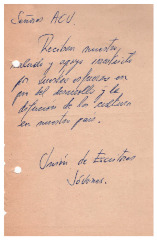 Señores ACU.
Reciban nuestro
saludo y apoyo
por vuestros esfuerzos en
pro del desarrollo y la
difusión de la cultura
en nuestro país.
Unión de Escritores
Jóvenes.